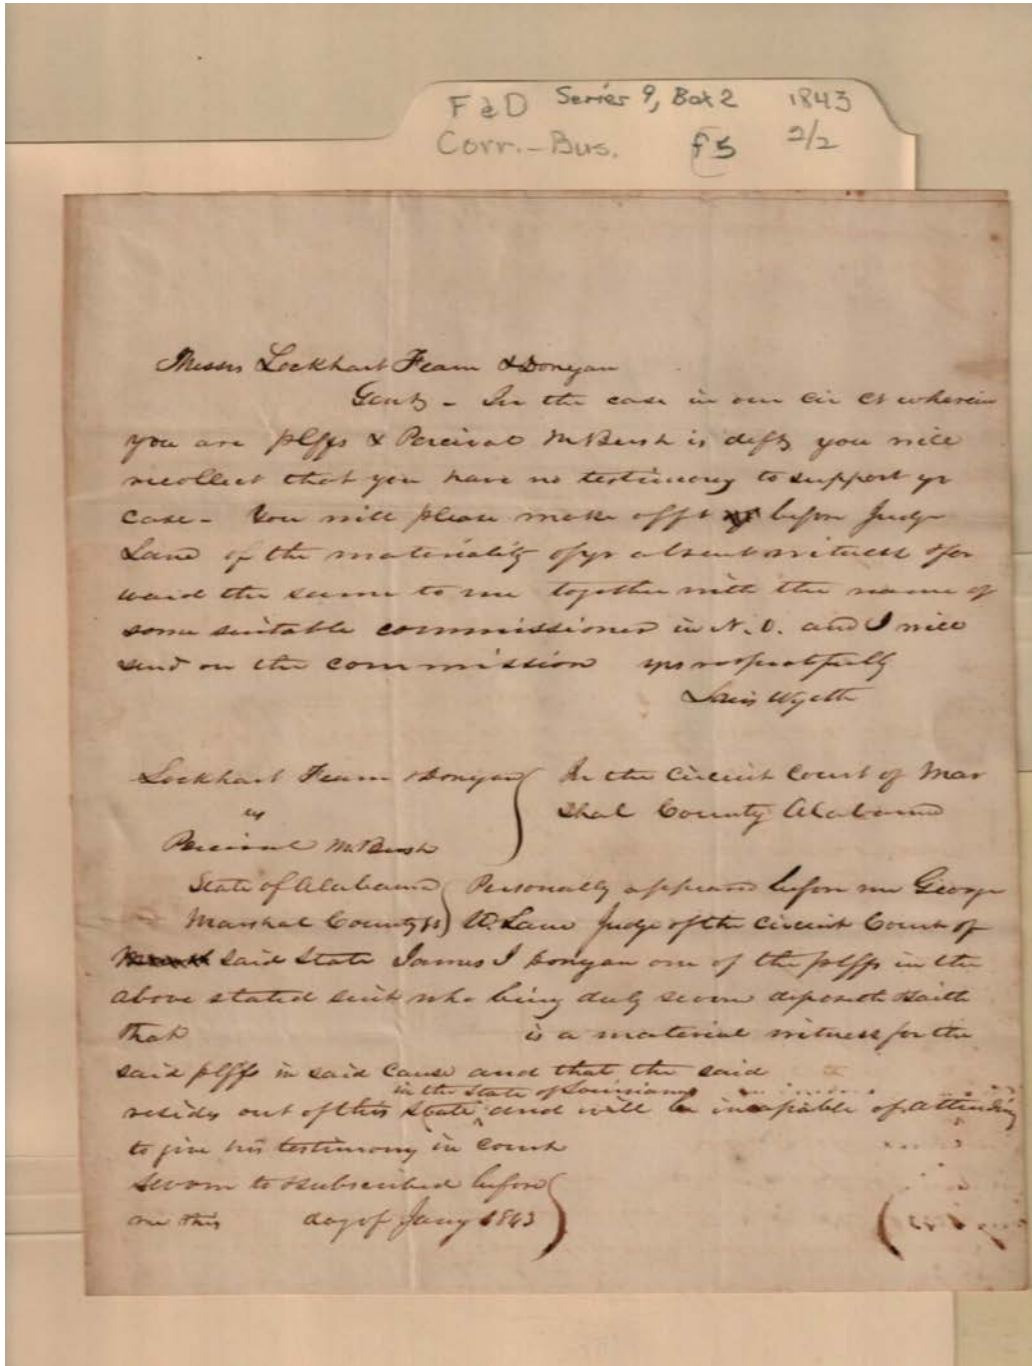 F & D Series 9, Box 2 1843
Corr.-Bus. f5 2/2
Messrs Lockhart Fearn & Donegan
Gents - In the case in our Cir Ct wherein
you are plffs & Percival McBush is deft you will
recollect that you have no testimony to support yr
case - You will please make afft before Judge
Lane of the materiality of yr absent witness & for
ward the same to me together with the name of
some suitable commissioner in N. O. and I will
send on the commission yrs respectfully
Louis Wyeth
Lockhart Fearn & Donegan ) In the Circuit Court of Mar
vs shal County Alabama
Percival McBush
State of Alabama ) Personally appeared before me George
Marshal County ss ) W. Lane Judge of the Circuit Court of
said State James J Donegan one of the plffs in the
above stated suit who being duly sworn deposeth & saith
that is a material witness for the
said plffs in said Cause and that the said
in the State of Louisiana
resides out of this State and will be incapable of attending
to give his testimony in Court
Sworn to & subscribed before )
me this day of Jany 1843 )